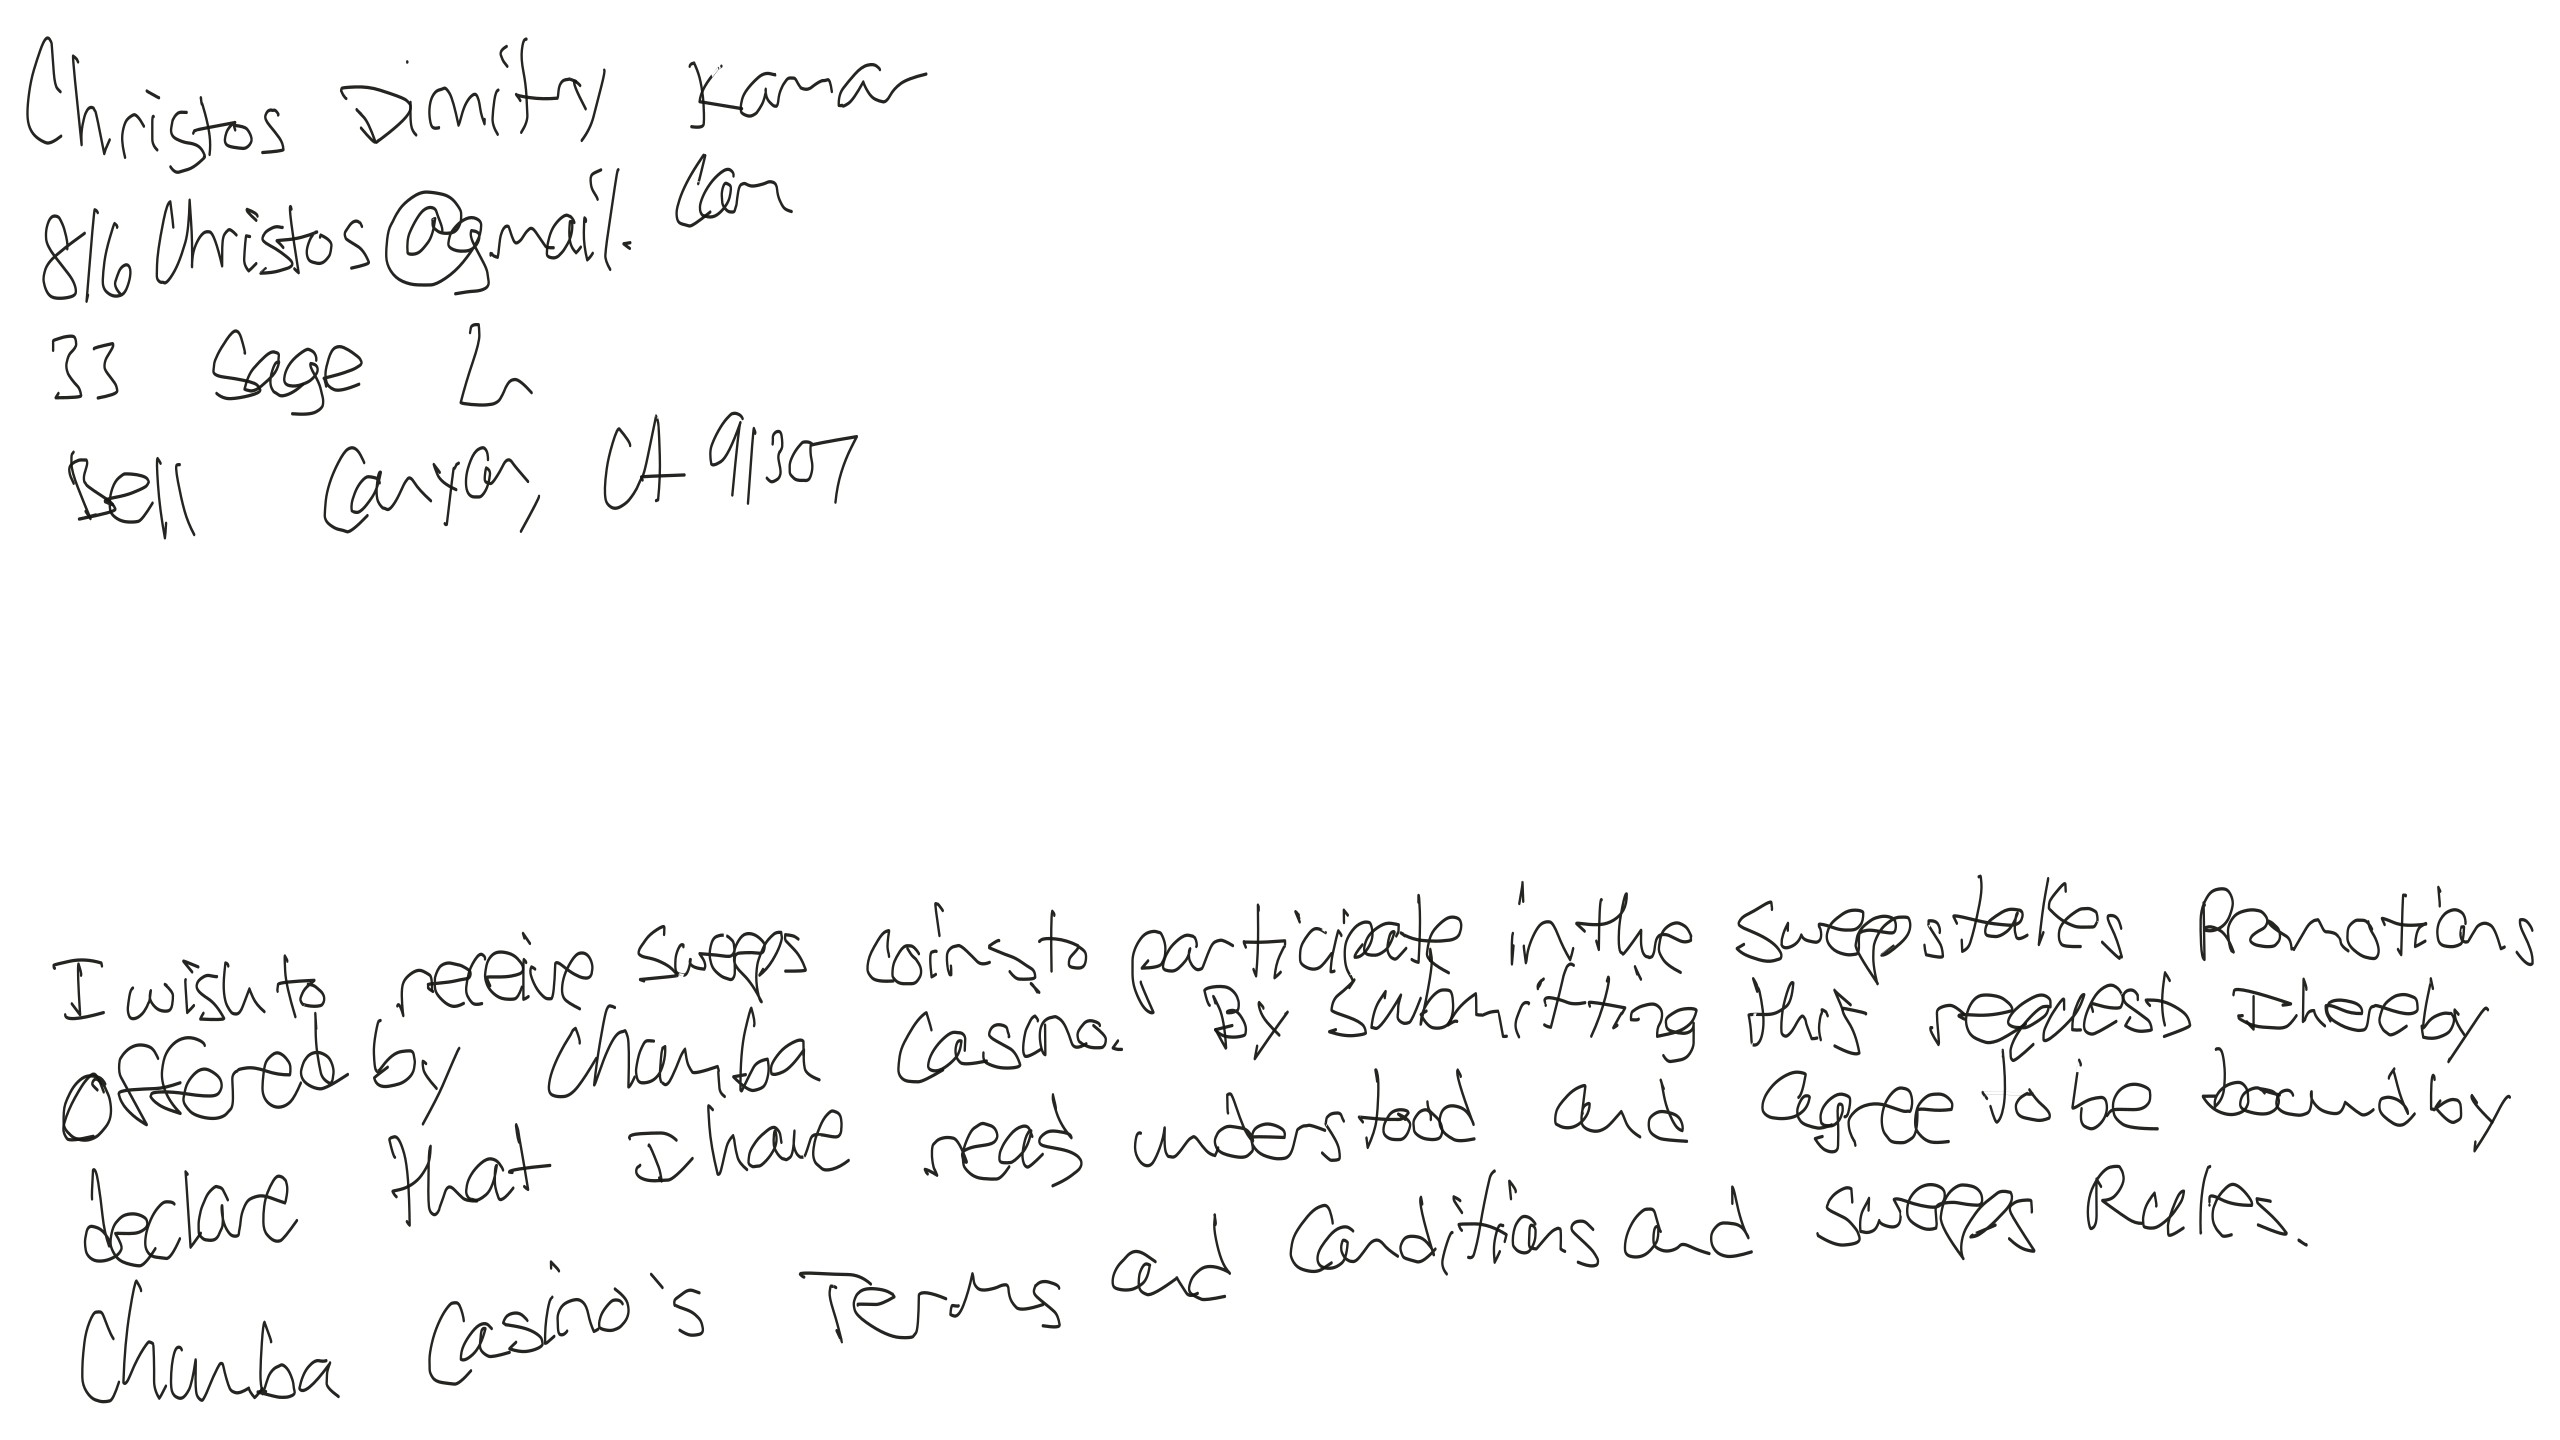 Christos Dimitry Kamar
816Christos@gmail.com
33 Sage Ln
Bell Canyon, CA 91307
I wish to receive sweeps coins to participate in the sweepstakes Promotions
offered by Chumba Casino. By submitting this request, I hereby
declare that I have read, understood and agree to be bound by
Chumba Casino's Terms and Conditions and Sweeps Rules.